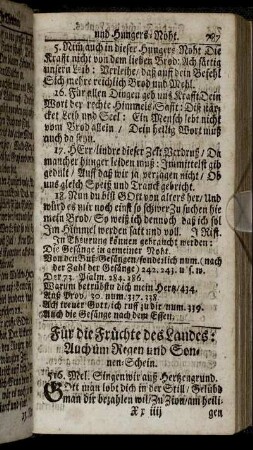 und Hungers-Noht. 787
5. Nun auch in dieser Hungers-Noht Die
Krafft nicht von dem lieben Brod: Ach sättig
unsern Leib: Verleihe/ daß auf dein Befehl
Sich mehre reichlich Brod und Mehl.
16. Für allen Dingen geb uns Krafft Dein
Wort der rechte Himmels-Safft: Das stär
cket Leib und Seel: Ein Mensch lebt nicht
vom Brod allein/ Dein heilig Wort muß
auch da seyn.
17. HErr/ lindre dieser Zeit Verdruß/ Da
mancher hunger leiden muß: Inmittelst gib
gedült/ Auff daß wir ja verzagen nicht/ Ob
uns gleich Speiß und Tranck gebricht.
18. Nun du bist GOtt von alters her/ Und
würd es mir noch einst so schwer Zu suchen hie
mein Brod/ So weiß ich dennoch daß ich sol
Im Himmel werden satt und voll. J Rist.
In Theurung können gebraucht werden:
Die Gesänge in gemeiner Noht.
Von den Buß-Gesängen/ sonderlich num. (nach
der Zahl der Gesänge) 242. 243. u. s. w.
Der 73. Psalm. 284. 286.
Warum betrübstu dich mein Hertz/ 434.
Aus Brod. 30. num. 337. 338
Ach treuer Gott/ ich ruff zu dir num. 339.
Auch die Gesänge nach dem Essen.
Für die Früchte des Landes:
Auch üm Regen und Son-
nen-Schein.
516. Mel. Singen wir auß Hertzengrund.
GOtt man lobt dich in der Still/ Gelübd
man dir bezahlen wil/ Zu Zion/ am heili-
Xx iiij gen